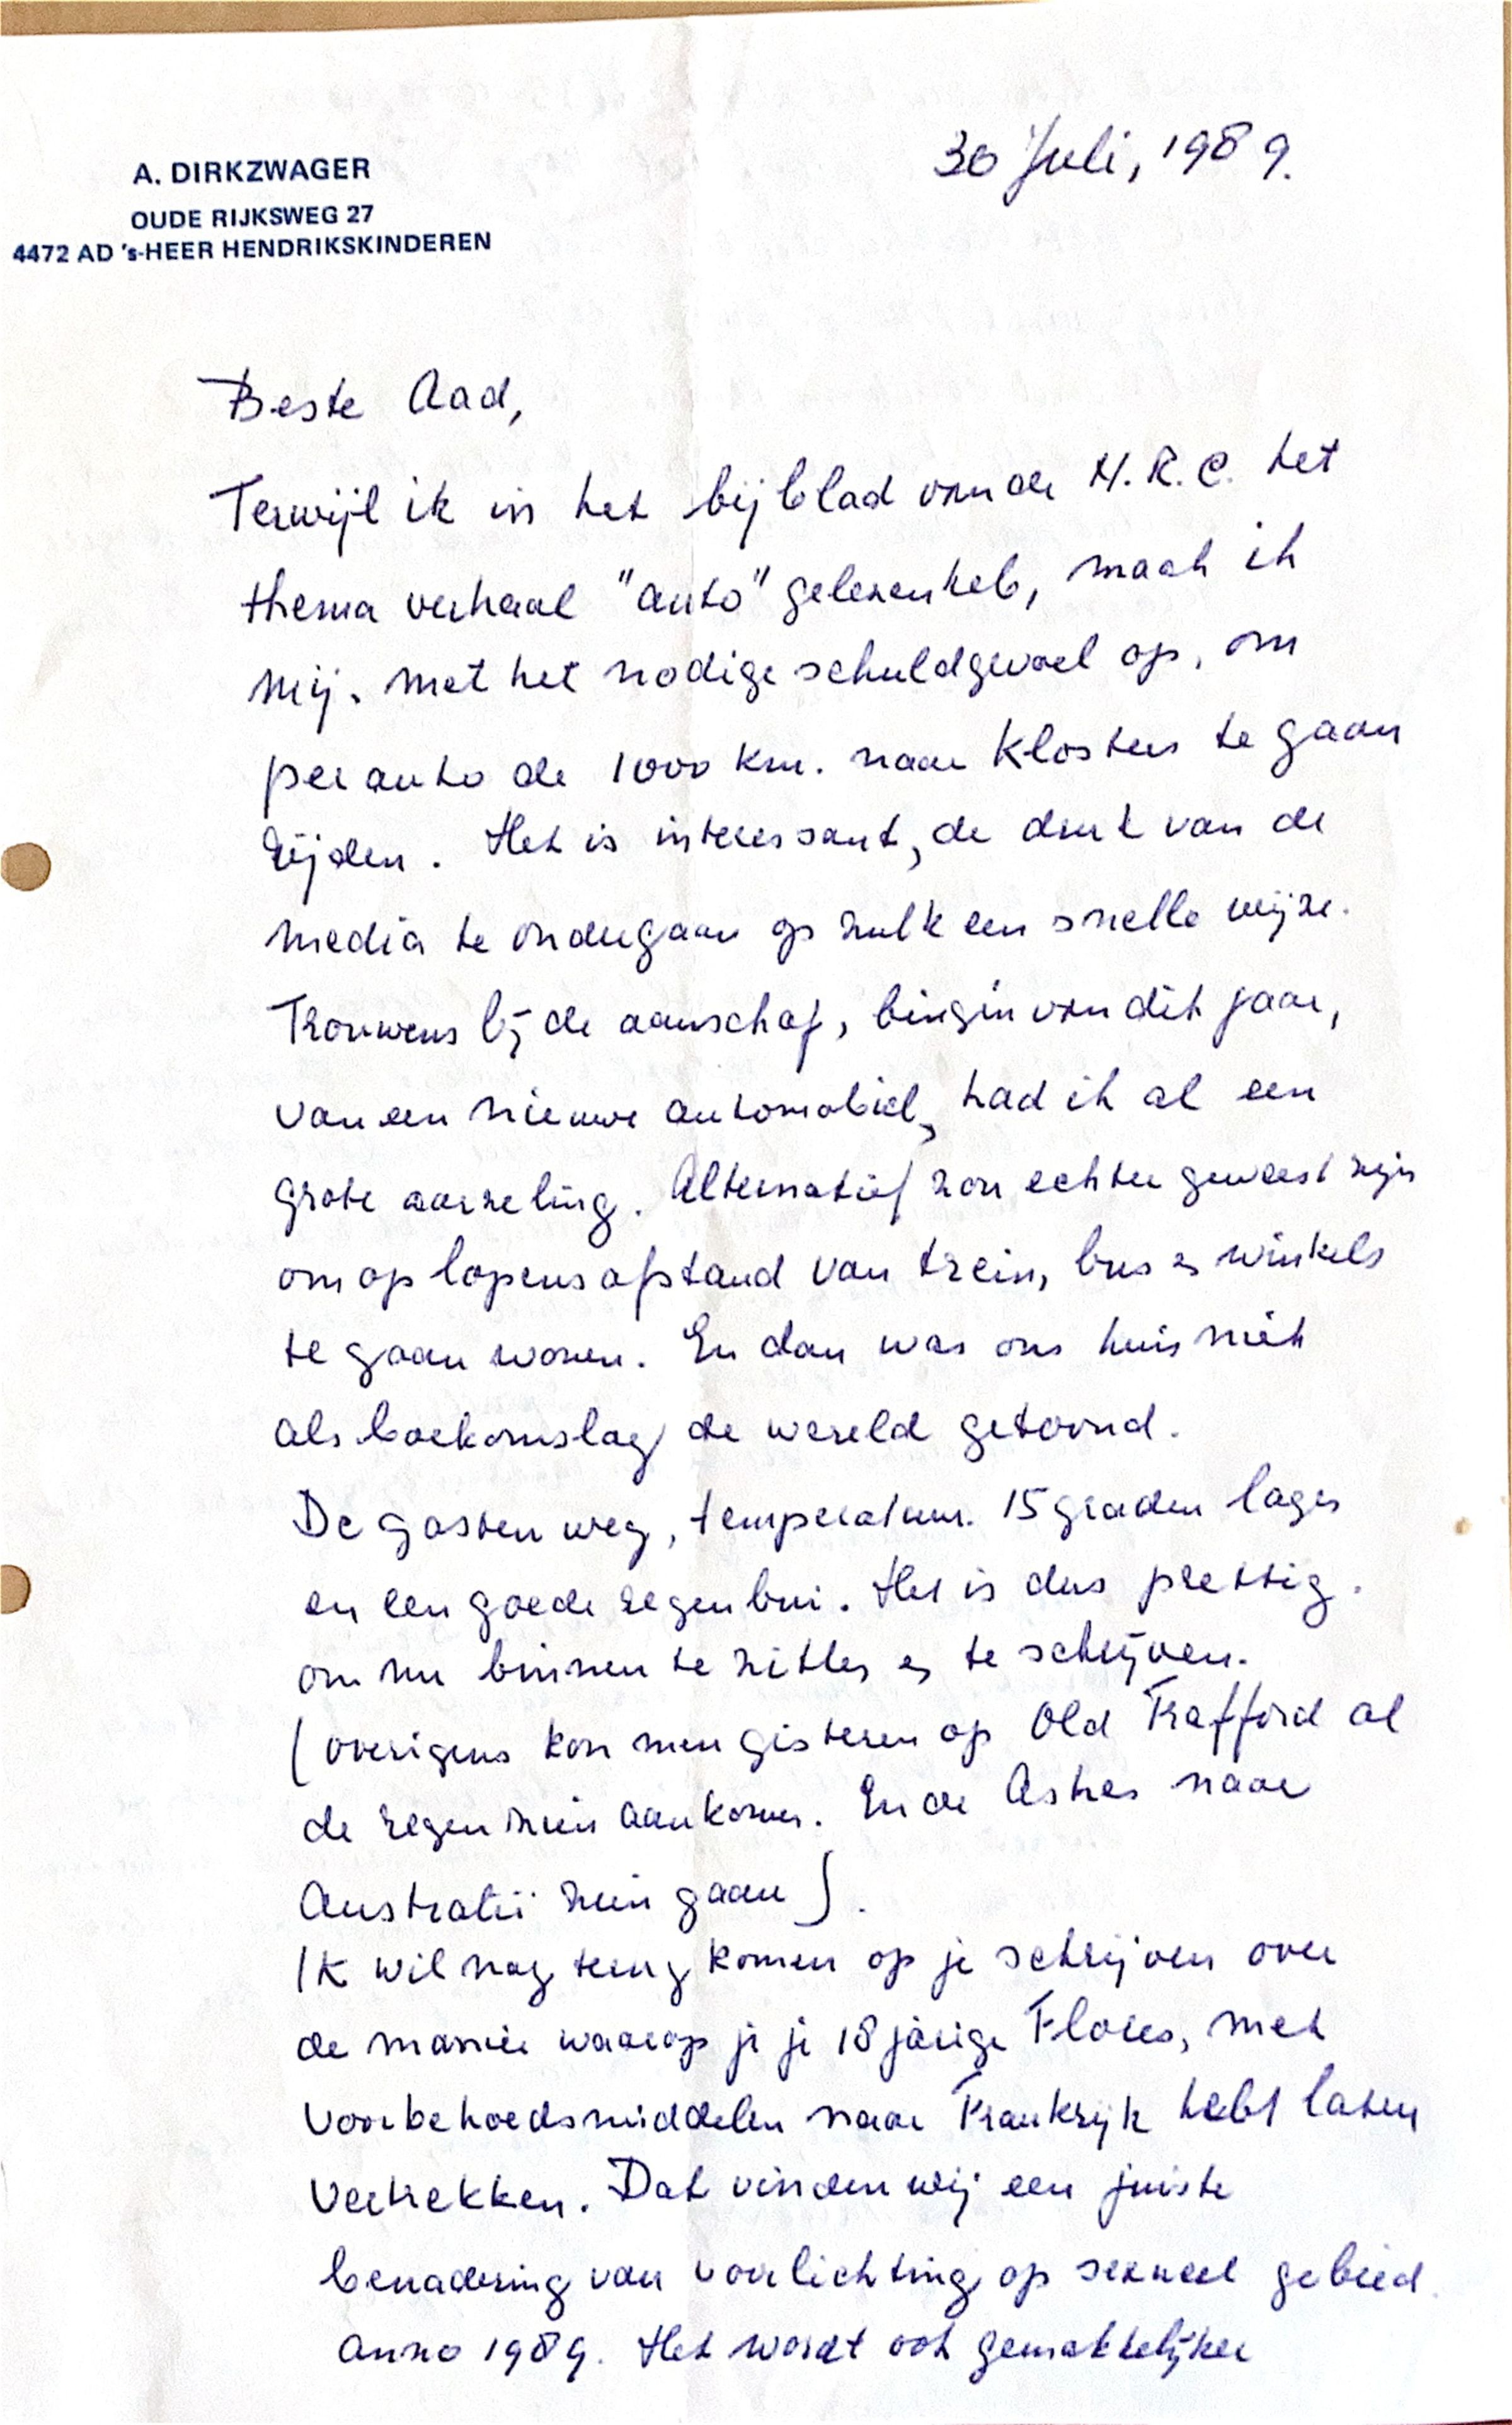 A. DIRKZWAGER
OUDE RIJKSWEG 27
4472 AD 's-HEER HENDRIKSKINDEREN
30 Juli, 1989.
Beste Aad,
Terwijl ik in het bijblad van de N.R.C. het
thema verhaal "auto" gelezen heb, maak ik
mij. met het nodige schuldgevoel op, om
per auto de 1000 km. naar Klosters te gaan
rijden. Het is interessant, de druk van de
media te ondergaan op zulk een snelle wijze.
Trouwens bij de aanschaf, begin van dit jaar,
van een nieuwe automobiel, had ik al een
grote aarzeling. Alternatief zou echter geweest zijn
om op lopensafstand van trein, bus en winkels
te gaan wonen. En dan was ons huis niet
als boekomslag de wereld getoond.
De gasten weg, temperatuur. 15 graden lager
en een goede regenbui. Het is dus prettig.
om nu binnen te zitten en te schrijven.
(overigens kon men gisteren op Old Trafford al
de regen zien aankomen. En de Ashes naar
Australië zien gaan).
Ik wil nog terug komen op je schrijven over
de manier waarop je je 18 jarige Flores, met
voorbehoedsmiddelen naar Frankrijk hebt laten
vertrekken. Dat vinden wij een juiste
benadering van voorlichting op sexueel gebied.
anno 1989. Het wordt ook gemakkelijker